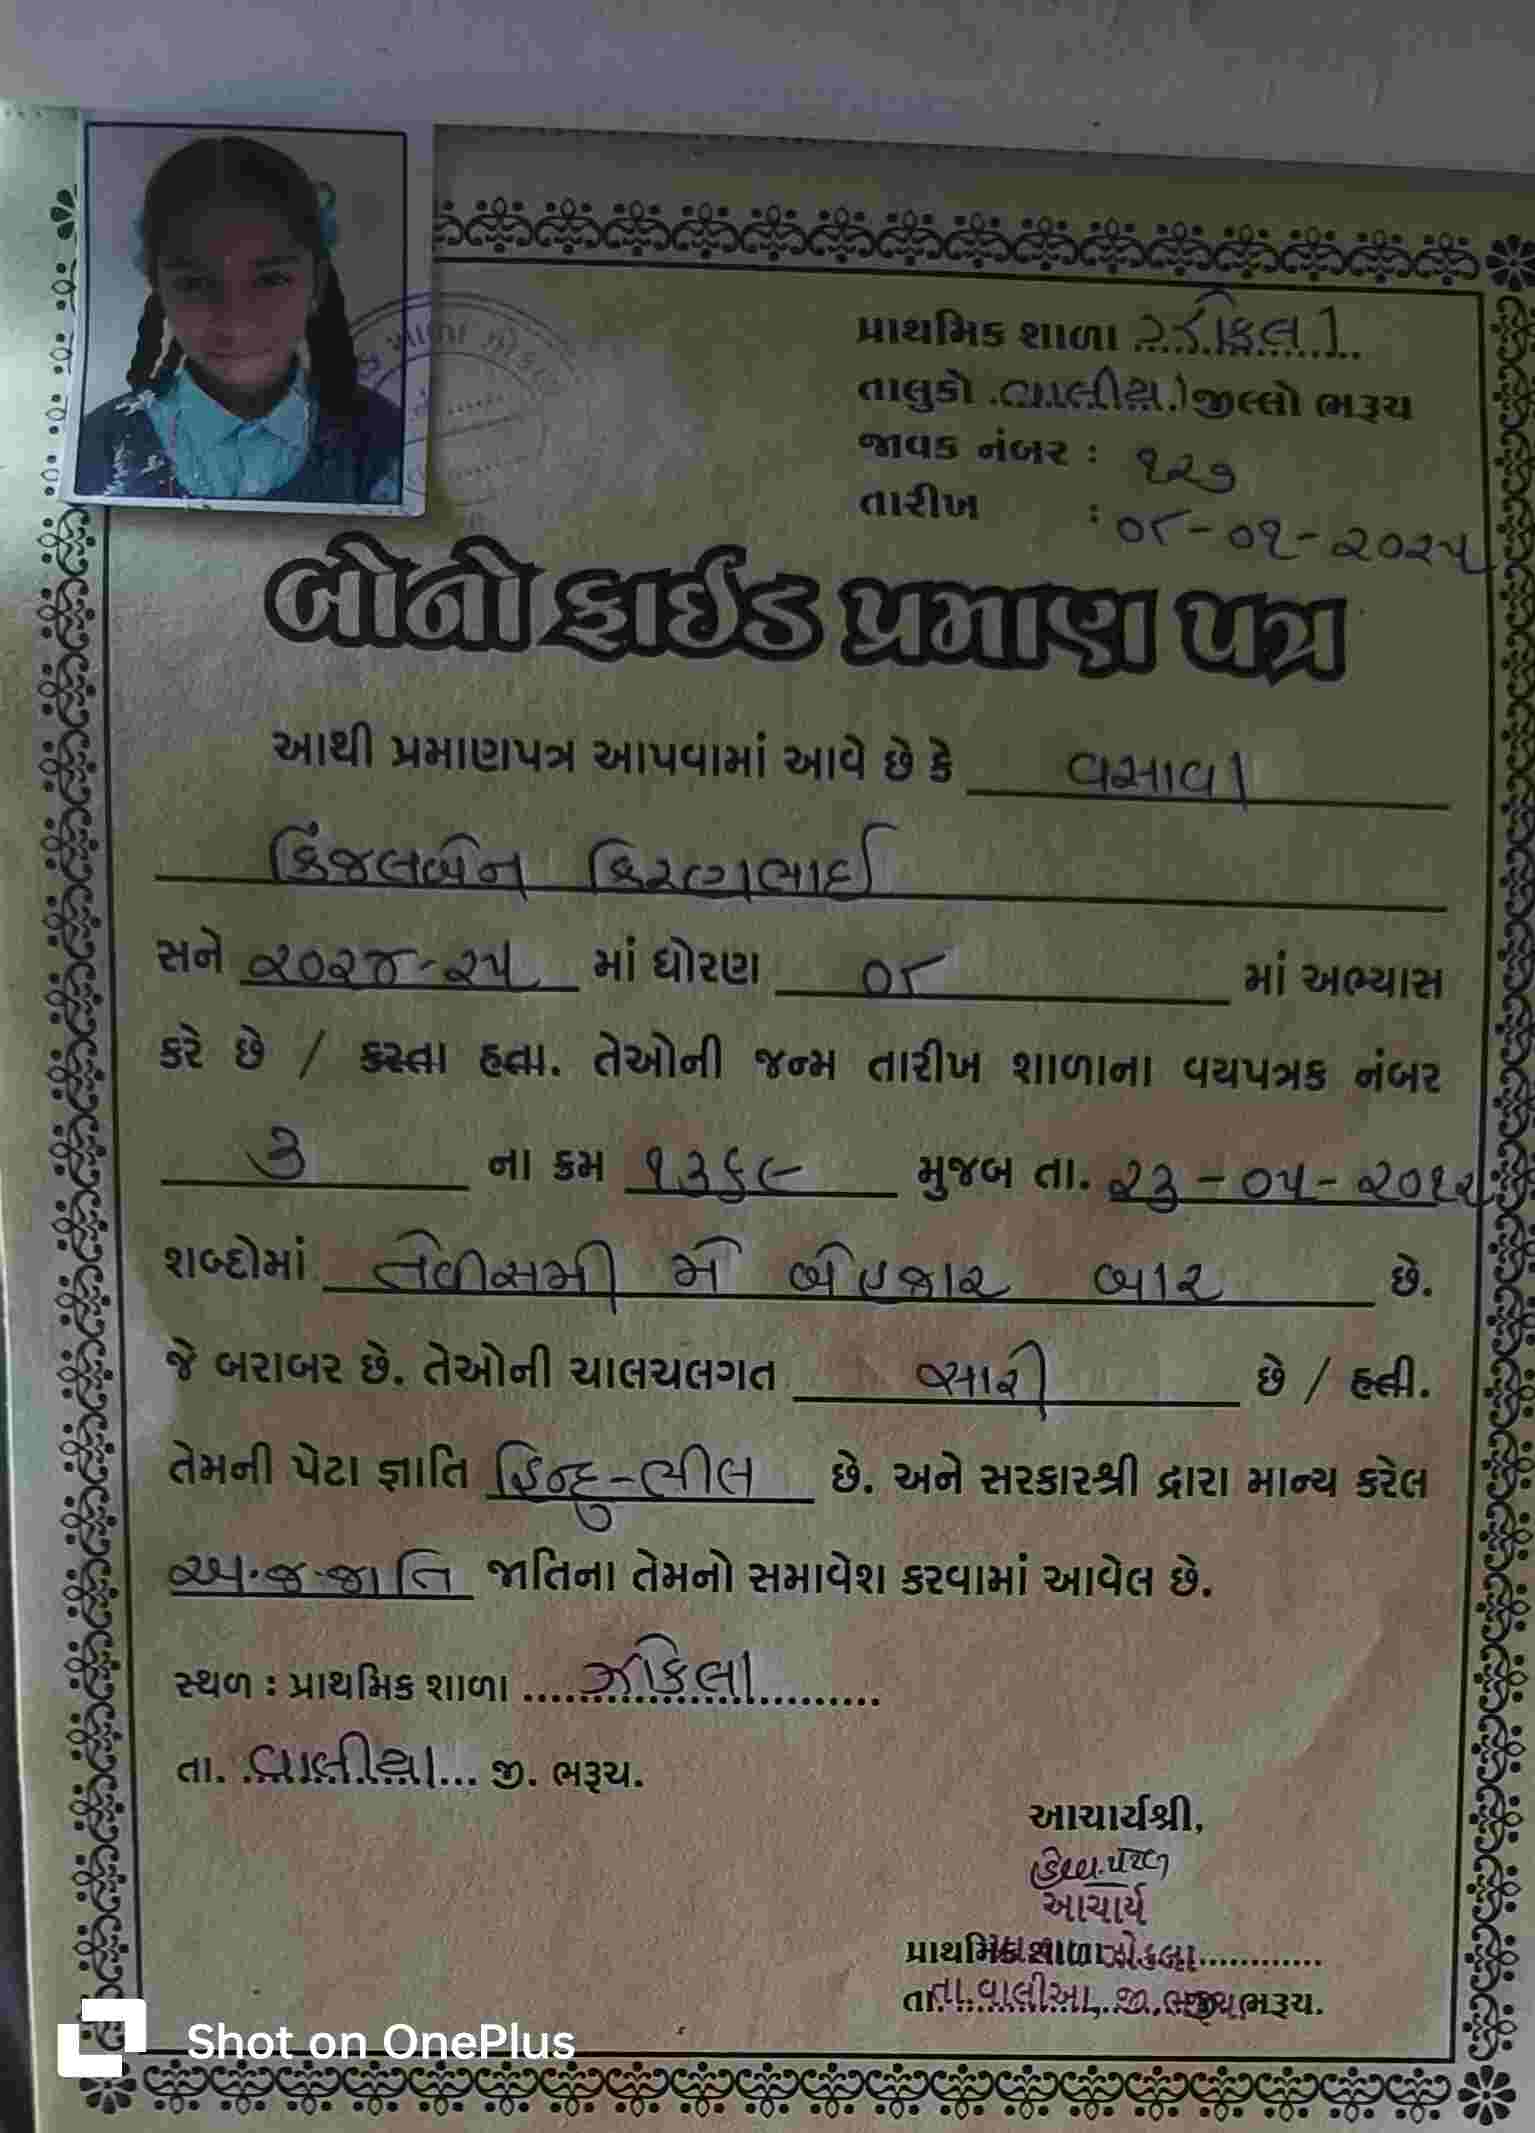 પ્રાથમિક શાળા
તાલુકો વાલીયા જીલ્લો ભરૂચ
જાવક નંબર : ૧૨૭
તારીખ : ૦૮-૦૧-૨૦૨૫
બોનોફાઈડ પ્રમાણ પત્ર
આથી પ્રમાણપત્ર આપવામાં આવે છે કે વસાવા
કિંજલબેન કિરણભાઈ
સને ૨૦૨૪-૨૫ માં ધોરણ ૦૮ માં અભ્યાસ
કરે છે / કરતા હતા. તેઓની જન્મ તારીખ શાળાના વયપત્રક નંબર
૩ ના ક્રમ ૧૩૬૯ મુજબ તા. ૨૩-૦૫-૨૦૧૨
શબ્દોમાં તેવીસમી મે બેહજાર બાર છે.
જે બરાબર છે. તેઓની ચાલચલગત સારી છે / હતી.
તેમની પેટા જ્ઞાતિ હિન્દુ-ભીલ છે. અને સરકારશ્રી દ્વારા માન્ય કરેલ
અ.જ.જાતિ જાતિના તેમનો સમાવેશ કરવામાં આવેલ છે.
સ્થળ : પ્રાથમિક શાળા ઝોકલા
તા. વાલીયા જી. ભરૂચ.
આચાર્યશ્રી,
આચાર્ય
પ્રાથમિક શાળા
તા. વાલીઆ, જી. ભરૂચ.
Shot on OnePlus